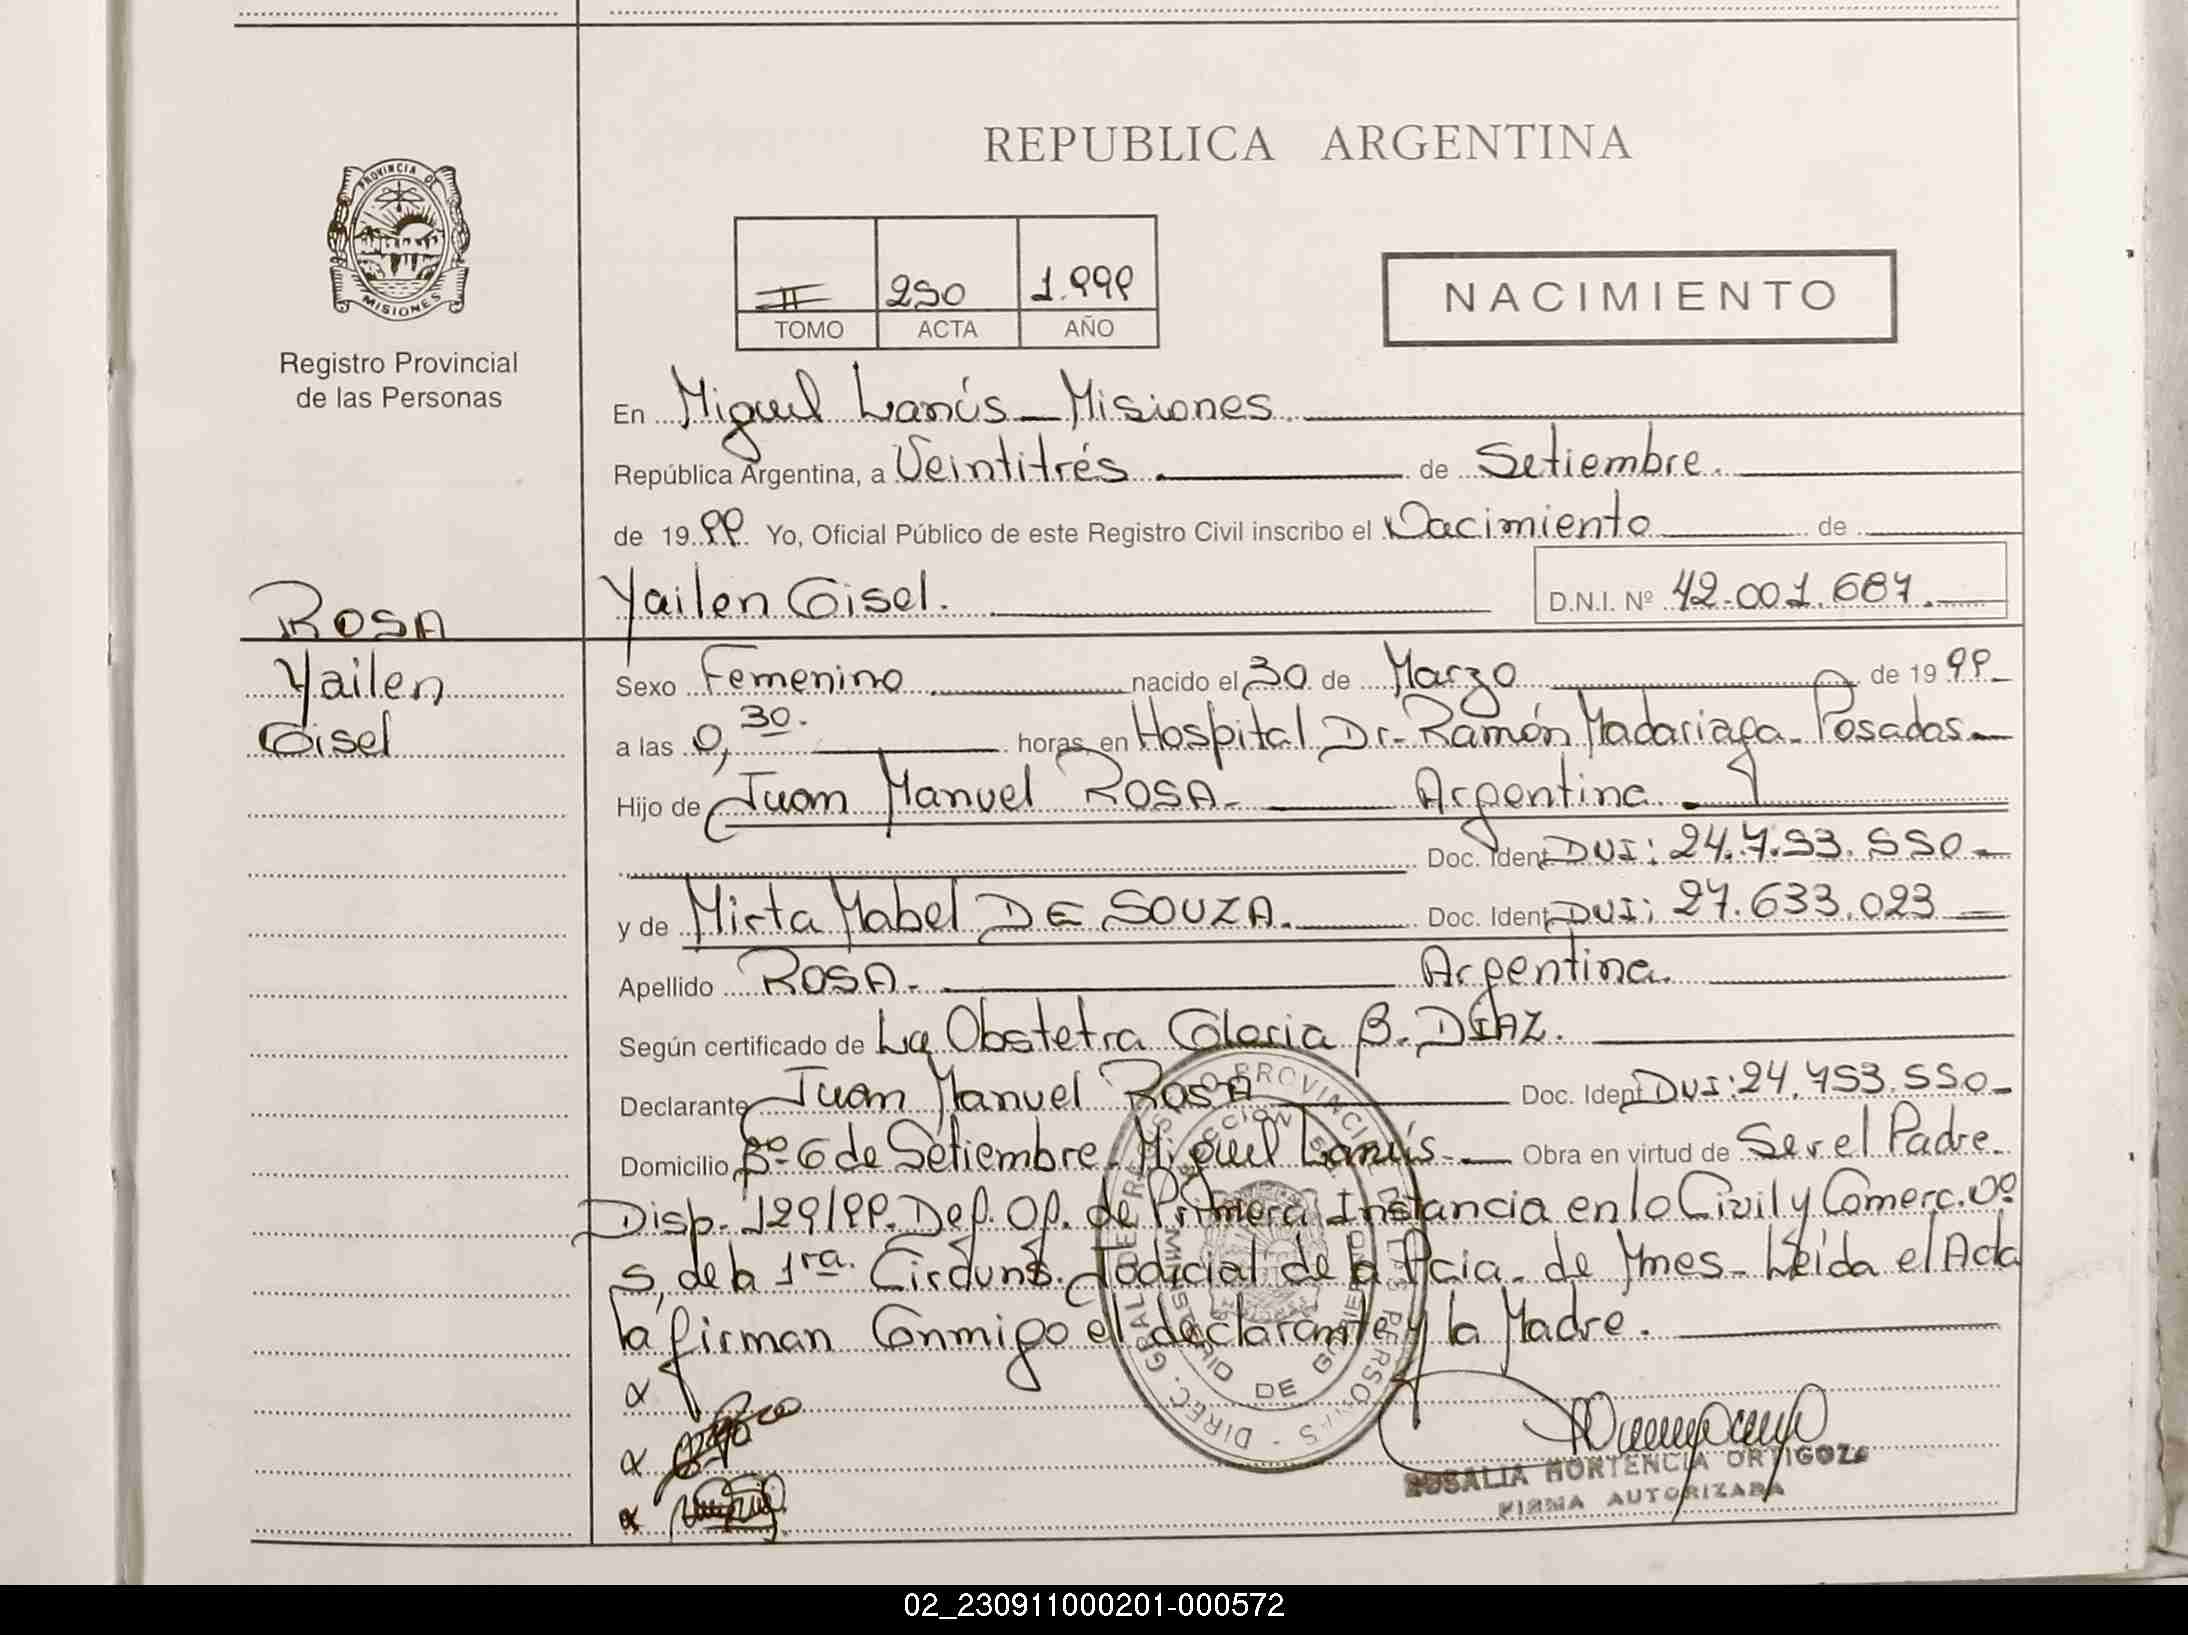 REPUBLICA ARGENTINA
PROVINCIA DE
MISIONES
Registro Provincial
de las Personas
II 290 1.999
TOMO ACTA AÑO
NACIMIENTO
En Miguel Lanús - Misiones.
República Argentina, a Veintitrés. de Setiembre.
de 1999. Yo, Oficial Público de este Registro Civil inscribo el Nacimiento de
ROSA
Yailen Gisel. D.N.I. Nº 42.001.687.
Yailen
Gisel
Sexo Femenino. nacido el 30 de Marzo de 1999
a las 0,30. horas, en Hospital Dr. Ramón Madariaga - Posadas.
Hijo de Juan Manuel ROSA. Argentina.
Doc. Ident. DNI: 24.753.550
y de Mirta Mabel DE SOUZA. Doc. Ident. DNI: 27.633.023
Apellido ROSA. Argentina.
Según certificado de La Obstetra Gloria B. DIAZ.
Declarante Juan Manuel ROSA Doc. Ident. DNI: 24.753.550
Domicilio Bº 6 de Setiembre - Miguel Lanús. Obra en virtud de Ser el Padre.
Disp. 129/99. Def. Of. de Primera Instancia en lo Civil y Comerc. Nº
5, de la 1ra. Judicial de la Pcia. de Mnes - Leida el Acta
la firman Conmigo el declarante y la Madre.
DIREC. GRAL DE REGISTRO PROVINCIAL DE LAS PERSONAS
MINISTERIO DE GOBIERNO
ROSALIA HORTENCIA ORTIGOZA
FIRMA AUTORIZADA
02_230911000201-000572